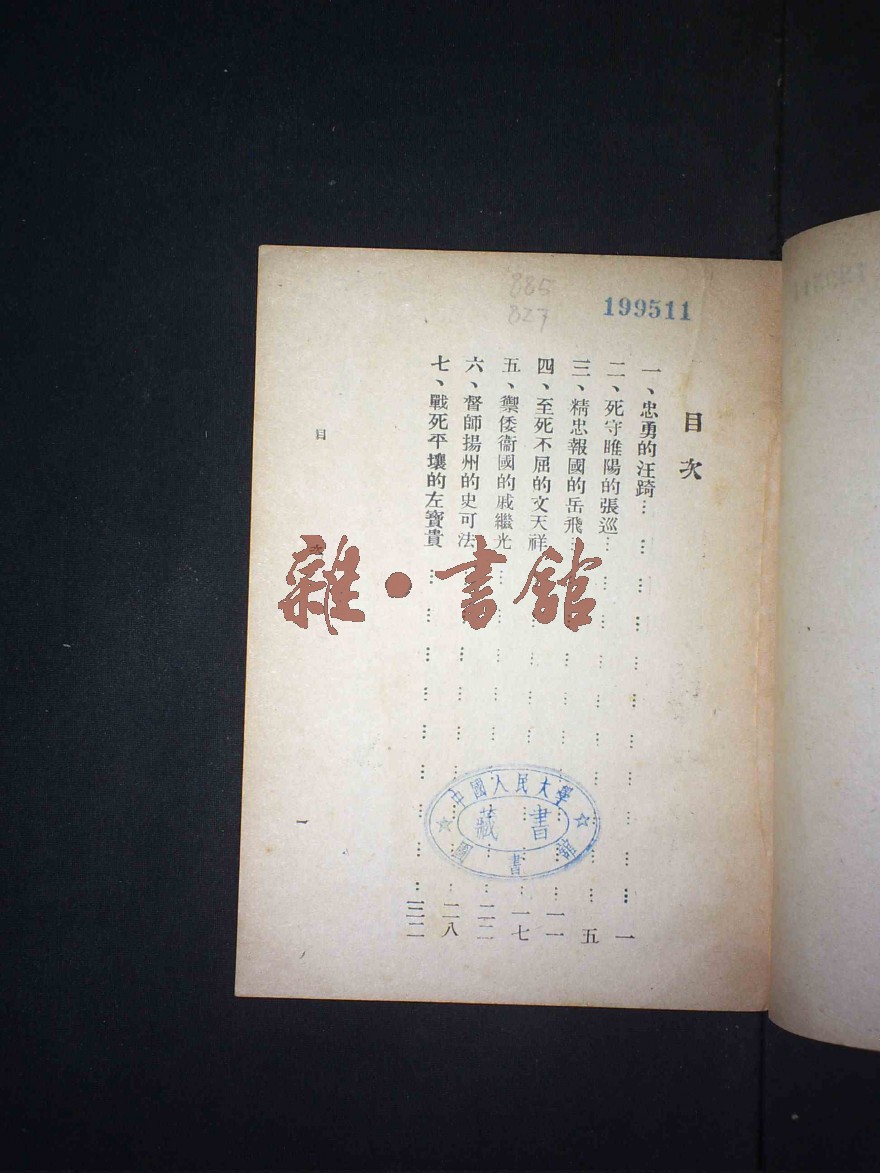 885
827
199511
目次
一、忠勇的汪踦…………………………一
二、死守睢陽的張巡…………………………五
三、精忠報國的岳飛…………………………一一
四、至死不屈的文天祥…………………………一七
五、禦倭衞國的戚繼光…………………………二二
六、督師揚州的史可法…………………………二八
七、戰死平壤的左寶貴…………………………三二
目
一
雜·書館
中國人民大學
藏書
圖書館